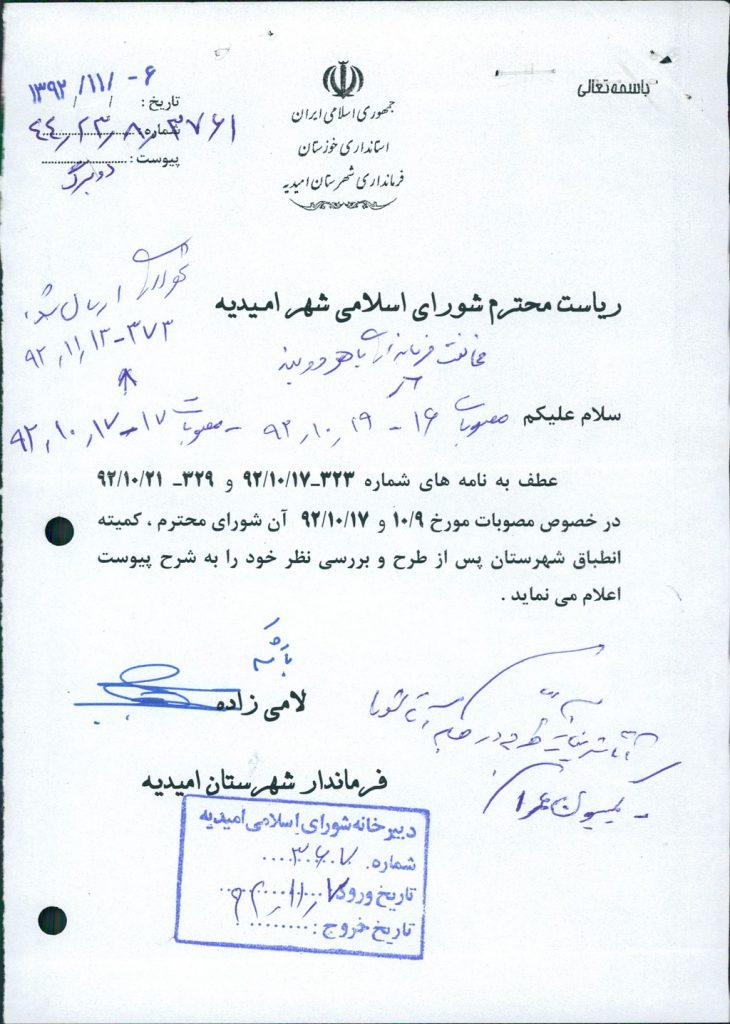 باسمه تعالی
جمهوری اسلامی ایران
استانداری خوزستان
فرمانداری شهرستان امیدیه
تاریخ : ۱۳۹۲/۱۱/۰۶
شماره : ۴۴٫۲۳٫۸٫۳۷۶۱
پیوست : دو برگ
ارسال شود
۹۲٫۱۱٫۱۲-۳۷۳
ریاست محترم شورای اسلامی شهر امیدیه
مخالفت فرمانداری با هر دو بند
سلام علیکم
مصوبات ۱۶ - ۹۲٫۱۰٫۱۹ - مصوبات ۱۷-۹۲٫۱۰٫۱۷
عطف به نامه های شماره ۳۲۳-۹۲/۱۰/۱۷ و ۳۲۹- ۹۲/۱۰/۲۱
در خصوص مصوبات مورخ ۱۰/۹ و ۹۲/۱۰/۱۷ آن شورای محترم ، کمیته
انطباق شهرستان پس از طرح و بررسی نظر خود را به شرح پیوست
اعلام می نماید .
لامی زاده
فرماندار شهرستان امیدیه
طرح در جلسه
- کمیسیون عمران
دبیرخانه شورای اسلامی امیدیه
شماره: ۳۶۰۷
تاریخ ورود: ۹۲٫۱۱٫۷
تاریخ خروج :